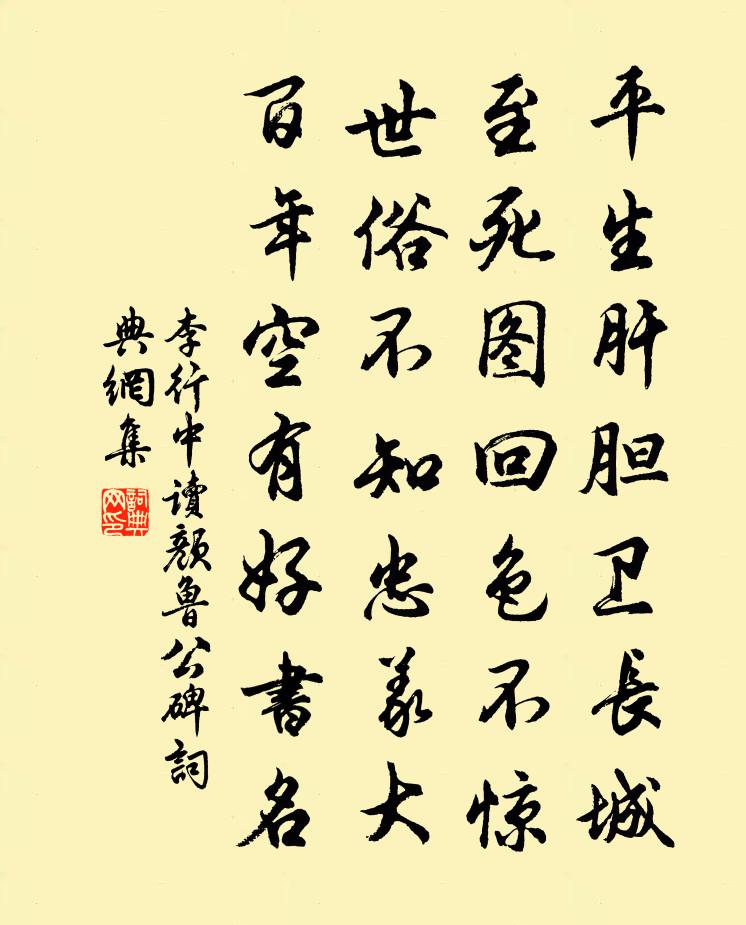 平生肝胆卫長城
至死图回色不惊
世俗不知忠義大
百年空有好書名
李行中讀顏魯公碑詞
典網集
詞典
网印